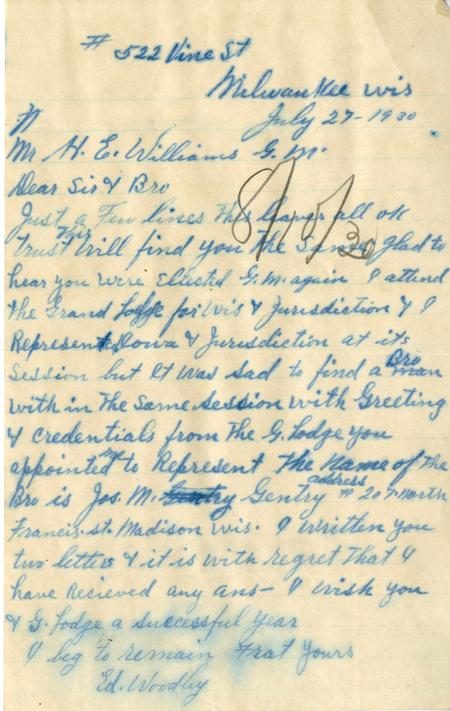 # 522 Vine St
Milwaukee Wis
July 27-1930
Mr H. E. Williams G. M.
Dear Sir & Bro
Just a Few lines This leaves all ok
trust This Will find you The Same glad to
hear you were Elected G. M. again I attend
the Grand Lodge for Wis & Jurisdiction & I
Represented Iowa & Jurisdiction at its
Session but it was sad to find a Bro man
with in The Same session with Greeting
& Credentials from The G. Lodge you
appointed to Represent the Name of The
Bro is Jos. M. Gentry Gentry address # 207 North
Francis. st. Madison Wis. I written you
two letters & it is with regret That I
have Recieved any ans- I wish you
& G. Lodge a successful year
I beg to remain Frat Yours
Ed. Woodby
8/15/30